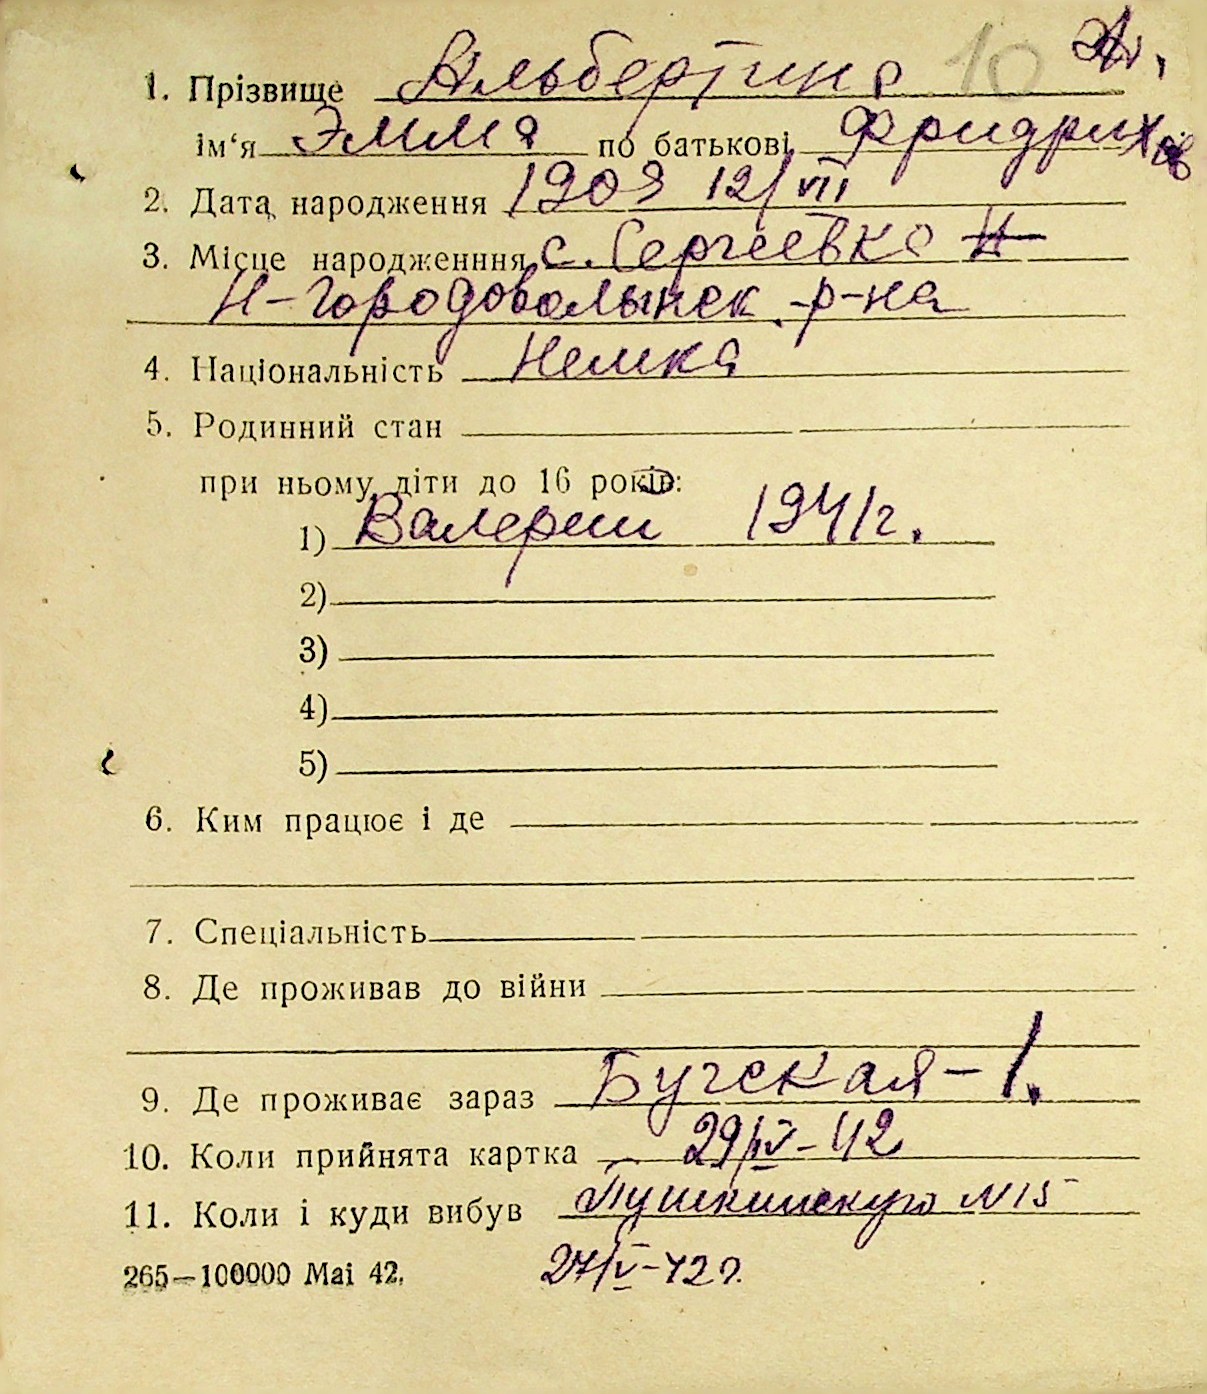 1. Прізвище Альбертина 10
ім‘я Эмма по батькові Фридрихов
2. Дата народження 1909 12/VII
3. Місце народженння с. Сергеевка Н
Н-Городоволынск. р-на
4. Національність Немка
5. Родинний стан
при ньому діти до 16 років:
1) Валерий 1941 г.
2)
3)
4)
5)
6. Ким працює і де
7. Спеціальність
8. Де проживав до війни
9. Де проживає зараз Бугская – 1.
10. Коли прийнята картка 29/IV – 42
11. Коли і куди вибув Пушкинскую N 15
265—100000 Mai 42. 27/V – 42 г.